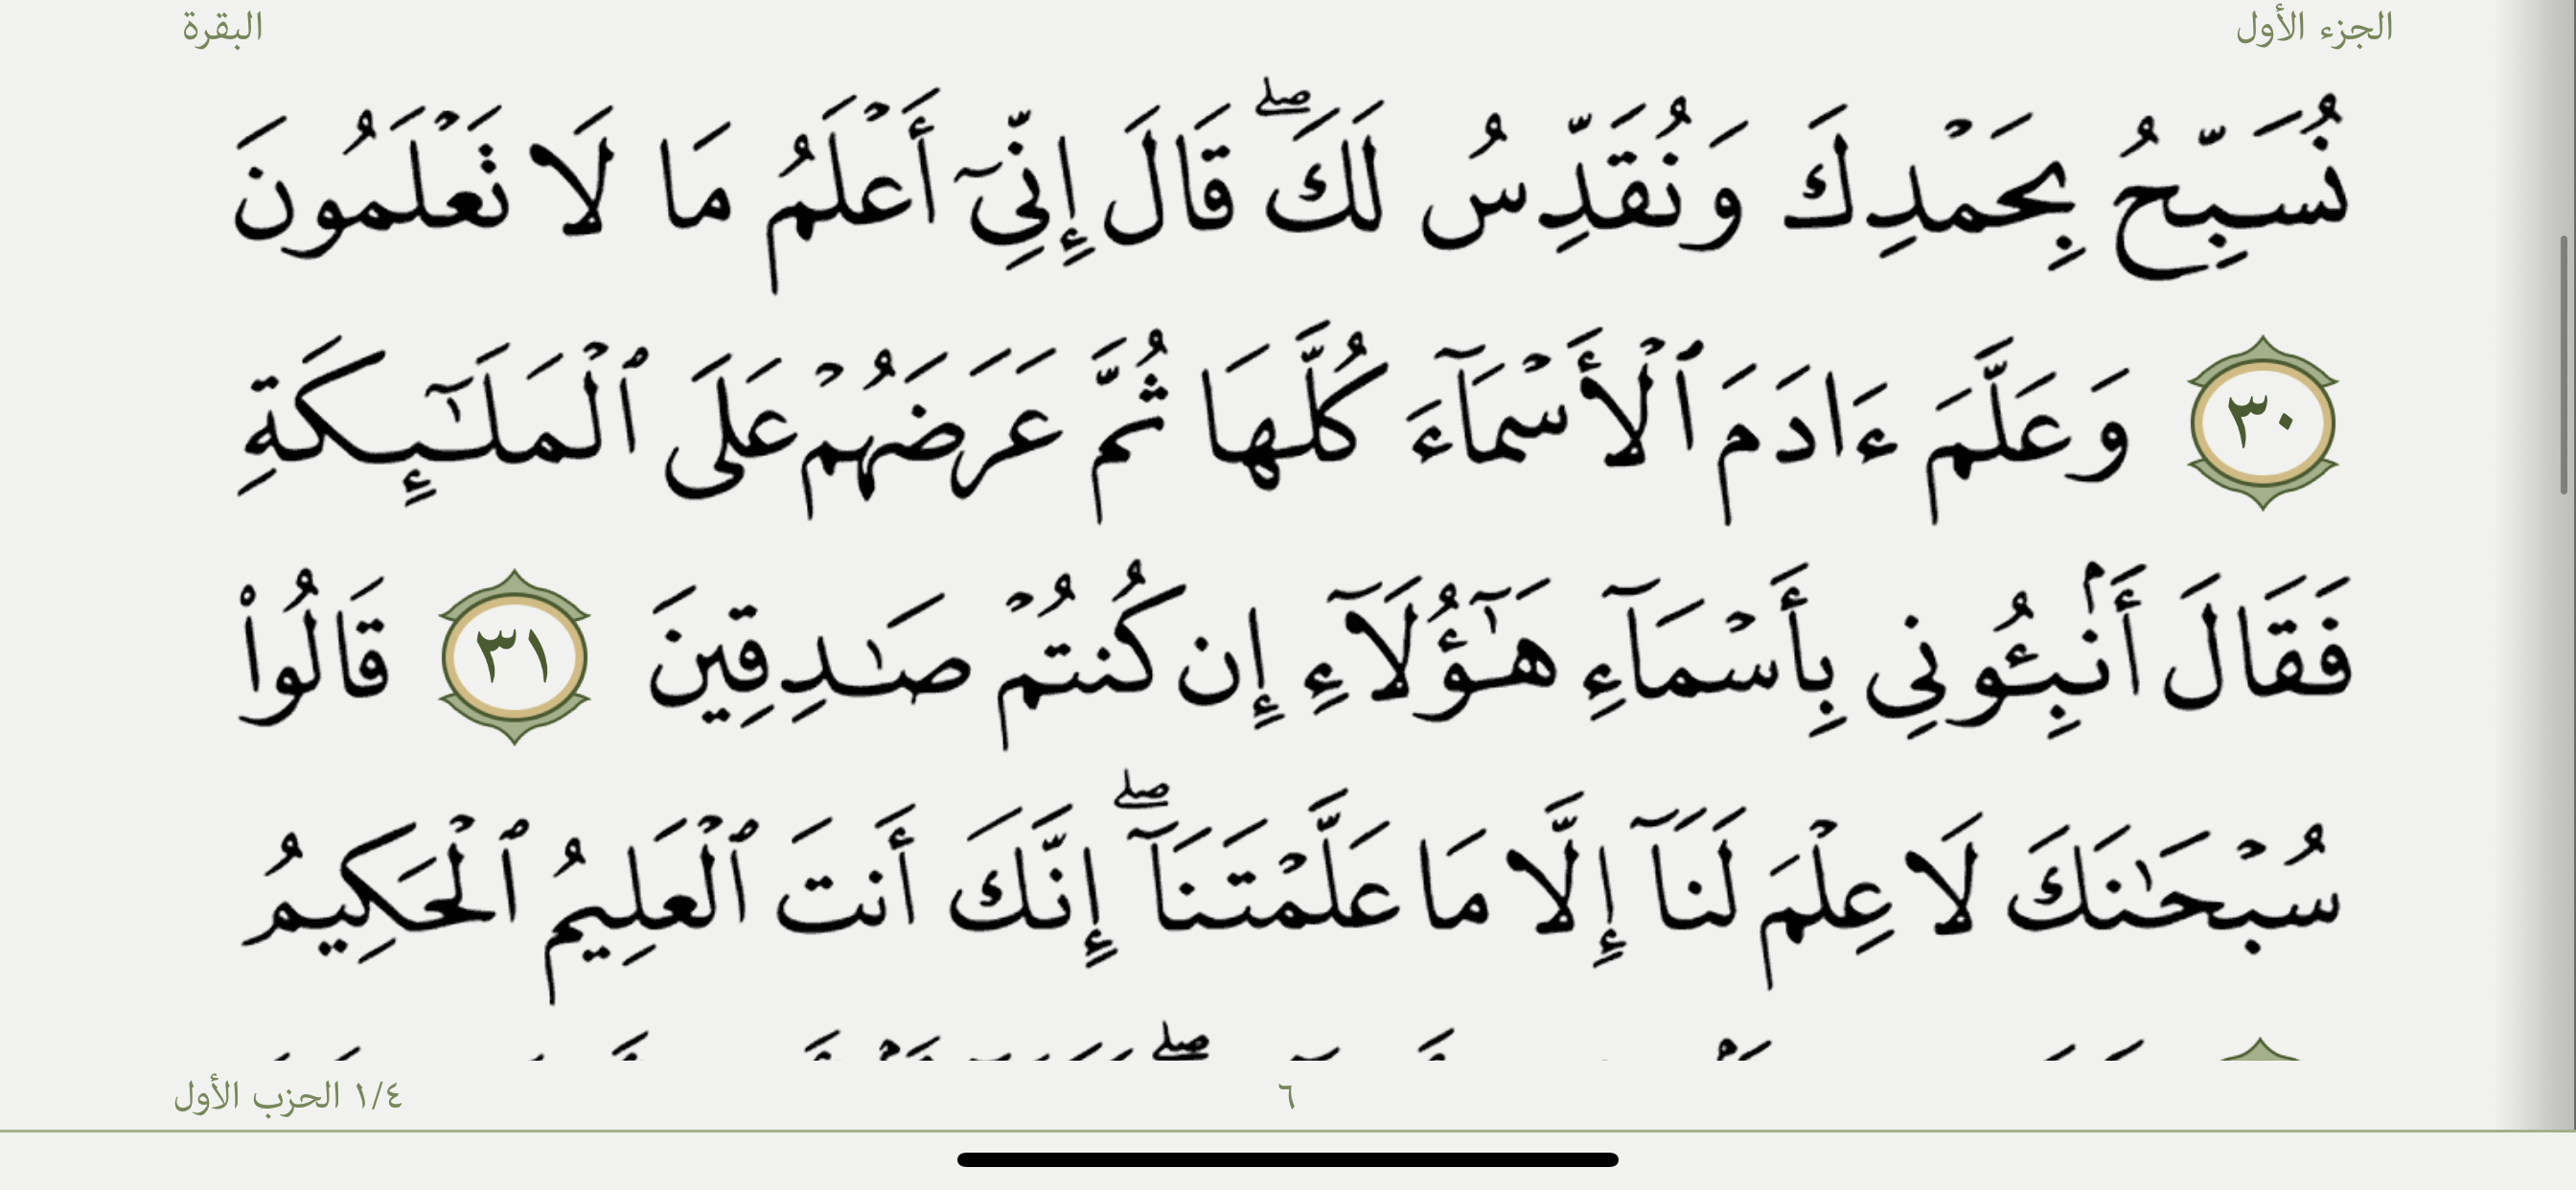 الجزء الأول البقرة
نُسَبِّحُ بِحَمْدِكَ وَنُقَدِّسُ لَكَۖ قَالَ إِنِّيٓ أَعْلَمُ مَا لَا تَعْلَمُونَ
٣٠ وَعَلَّمَ ءَادَمَ ٱلْأَسْمَآءَ كُلَّهَا ثُمَّ عَرَضَهُمْ عَلَى ٱلْمَلَـٰٓئِكَةِ
فَقَالَ أَنۢبِـُٔونِي بِأَسْمَآءِ هَـٰٓؤُلَآءِ إِن كُنتُمْ صَـٰدِقِينَ ٣١ قَالُوا۟
سُبْحَـٰنَكَ لَا عِلْمَ لَنَآ إِلَّا مَا عَلَّمْتَنَآۖ إِنَّكَ أَنتَ ٱلْعَلِيمُ ٱلْحَكِيمُ
٦ ١/٤ الحزب الأول